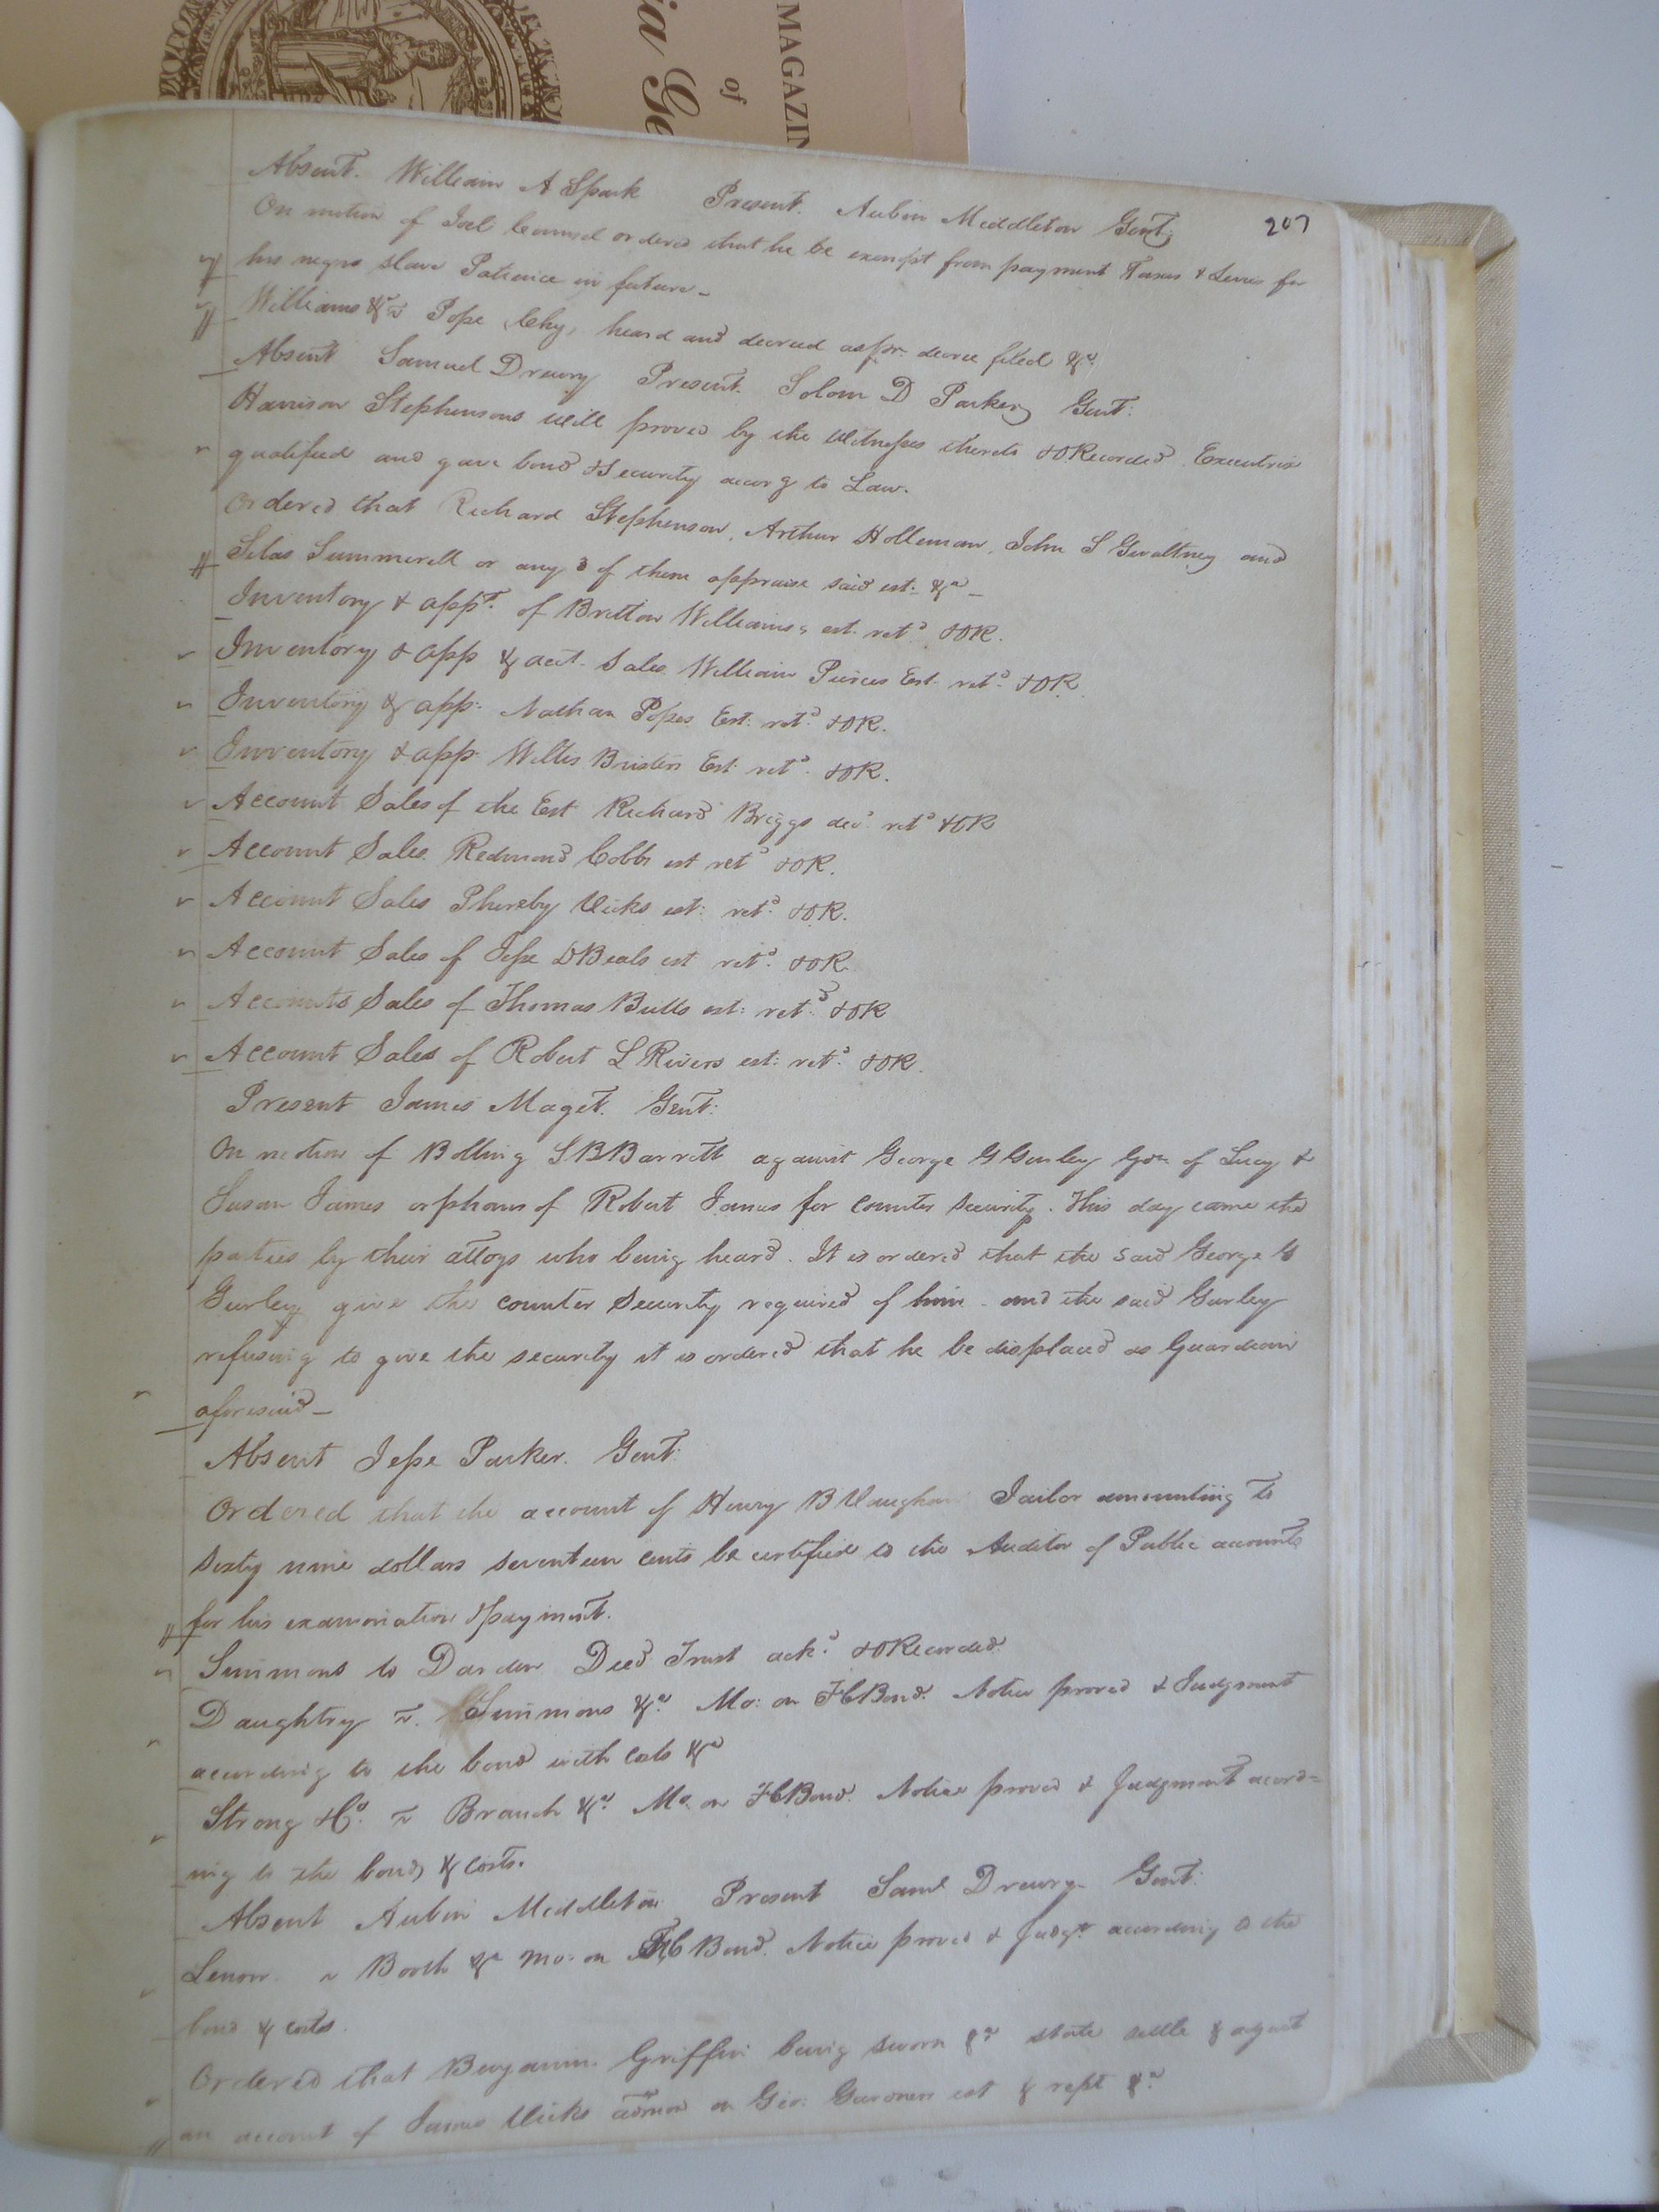 MAGAZIN
of
ia Ge
207
Absent. William A Spark Present. Aubin Middleton Gent:
On motion of Joel Council ordered that he be exempt from payment Taxes & Levies for
his negro slave Patience in future -
Williams &c vs Pope Chy, heard and decreed as pr. decree filed &c
Absent Samuel Drewry Present. Solom D Parker Gent:
Harrison Stephensons will proved by the Witnesses thereto & O Recorded Executrix
qualified and gave bond & Security accorg to Law.
Ordered that Richard Stephenson, Arthur Holleman, John S Gwaltney and
Silas Summerell or any 3 of them appraise said est: &c -
Inventory & appt. of Britton Williams's est. retd. & OR.
Inventory & app & acct. Sales William Pierces Est. retd. & OR.
Inventory & app. Nathan Popes Est: retd. & OR.
Inventory & app. Willis Bristers Est: retd. & OR.
Account Sales of the Est Richard Briggs decd. retd & OR
Account Sales Redmond Cobbs est retd & OR.
Account Sales Phereby Vicks est: retd. & OR.
Account Sales of Jesse D Beals est retd. & OR
Accounts Sales of Thomas Butts est: retd. & OR
Account Sales of Robert L Rivers est: retd. & OR.
Present James Maget. Gent:
On motion of Bolling S B Barrett against George G Gurley Gdn of Lucy &
Susan James orphans of Robert James for counter security. This day came the
parties by their attoys who being heard. It is ordered that the said George G
Gurley give the counter security required of him - and the said Gurley
refusing to give the security it is ordered that he be displaced as Guardian
aforesaid -
Absent Jesse Parker. Gent:
Ordered that the account of Henry B Vaughan Jailor amounting to
sixty nine dollars seventeen cents be certified to the Auditor of Public accounts
for his examination & payment.
Simmons to Darden Deed Trust ackd. & O Recorded.
Daughtry vs. Simmons &c. Mo: on FCBond. Notice proved & Judgment
according to the bond with costs &c
Strong & Co. vs Branch &c. Mo. on FCBond. Notice proved & Judgment accord=
ing to the bond, & costs.
Absent Aubin Middleton Present Saml Drewry Gent:
vs Booth &c Mo: on FC Bond. Notice proved & Judgt. according to the
bond & costs.
Ordered that Benjamin Griffin being sworn &c state settle & adjust
an account of James Vicks admon on Geo: Gardners est & rept &c.